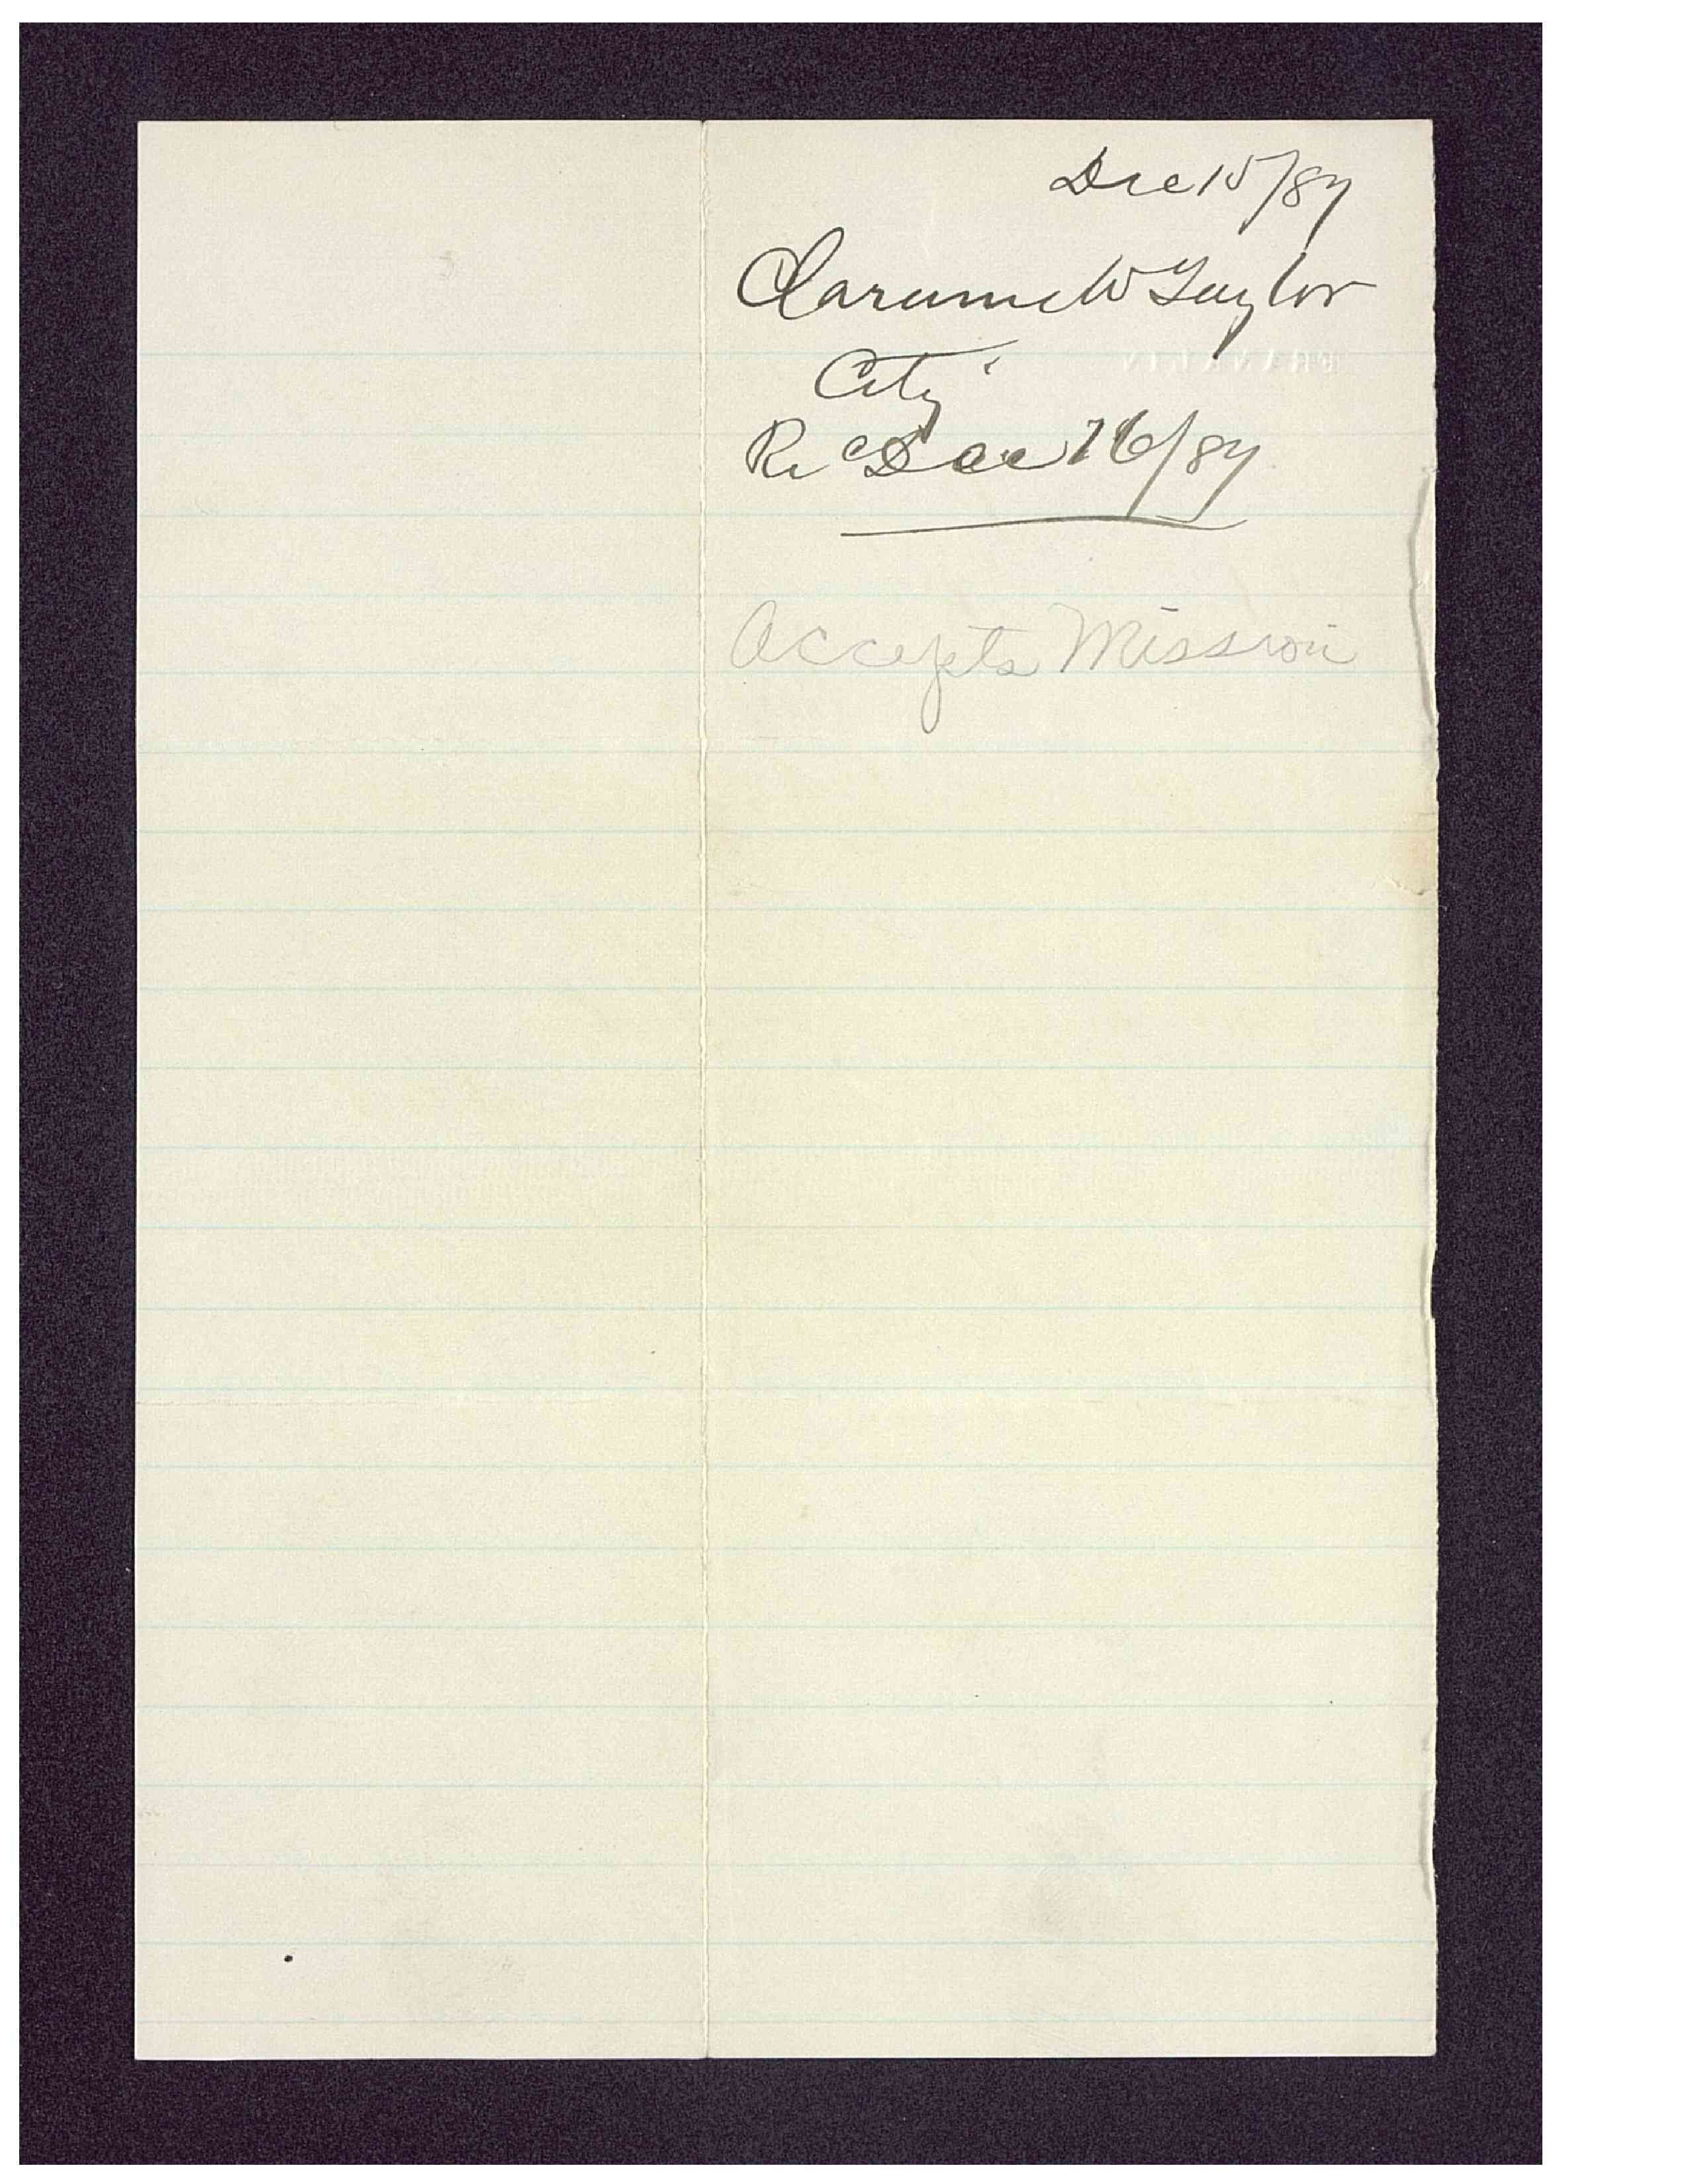 Dec 15/87
Clarence W Taylor
City
Rec Dec 16/87
Accepts Mission